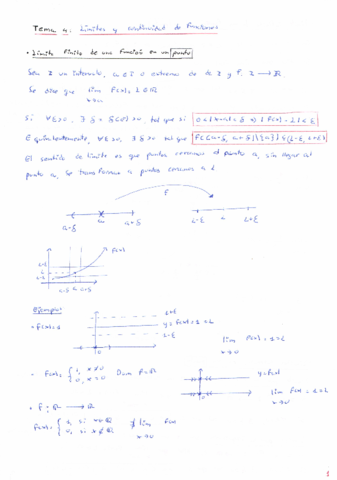 Tema 4: Límites y continuidad de funciones
• Límite finito de una función en un punto
Sea I un intervalo, a ∈ I o extremo de I y f: I → ℝ
Se dice que lim f(x) = L ∈ ℝ
x→a
si ∀ε>0, ∃ δ = δ(ε) >0, tal que si 0<|x-a|<δ ⇒ |f(x)-L|<ε
Equivalentemente, ∀ε>0, ∃ δ>0 tal que
El sentido de límite es que puntos cercanos al punto a, sin llegar al
punto a, se transforman a puntos cercanos a L
f
a-δ a a+δ
L-ε L L+ε
f(x)
L+ε
L
L-ε
a-δ a a+δ
Ejemplos
L+ε
• f(x)=1
y=f(x)=1=L
L-ε
0
lim f(x)=1=L
x→0
• f(x)= { 1, x≠0
0, x=0
Dom f=ℝ
y=f(x)
0
lim f(x)=1=L
x→0
• f: ℝ → ℝ
f(x)= { 1, si x∈ℚ
0, si x∉ℚ
∄ lim f(x)
x→0